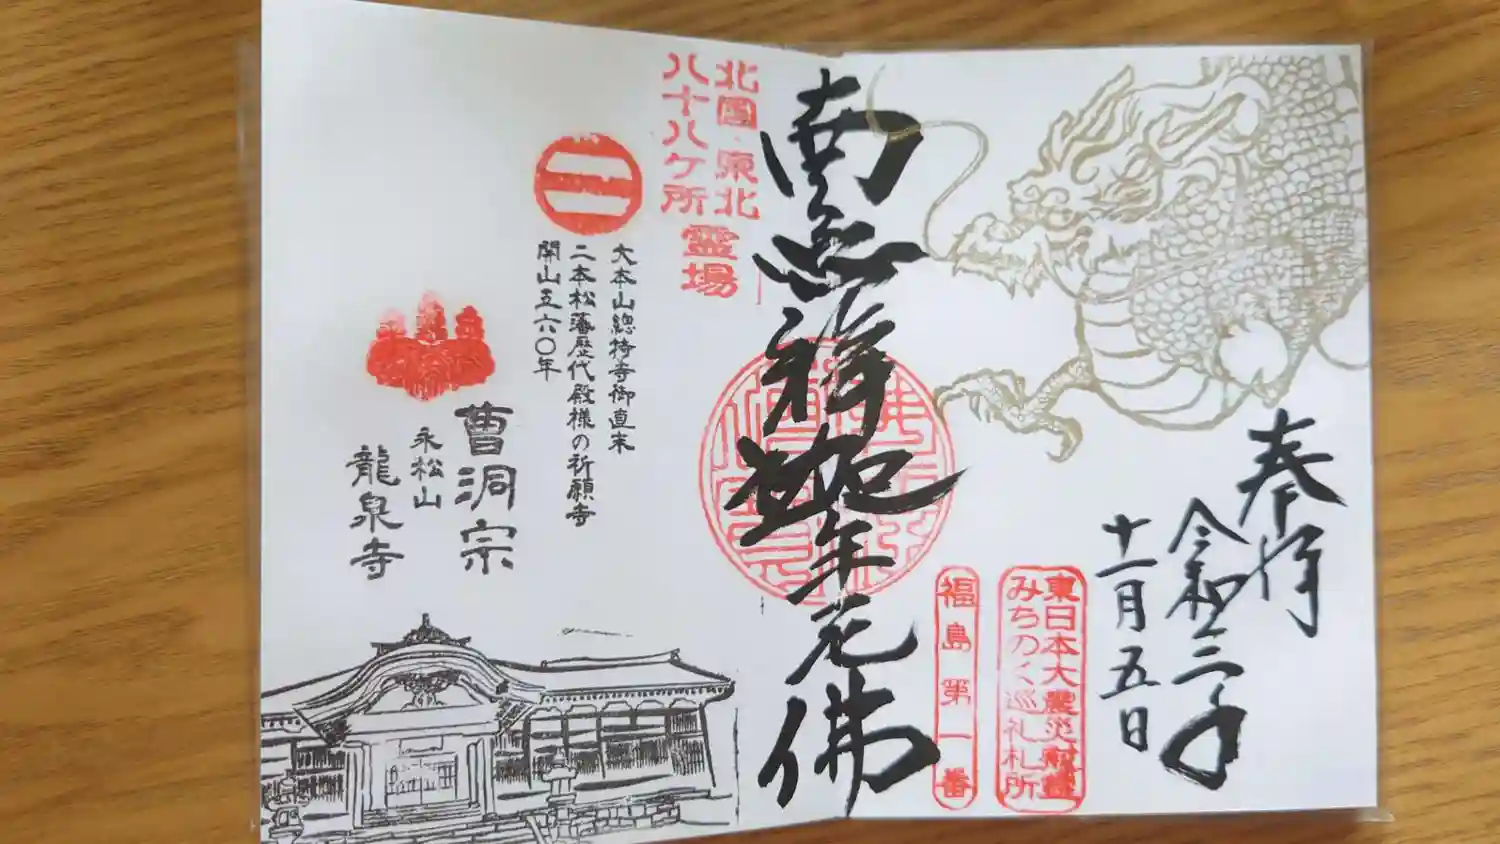 奉拝
令和三年
十一月五日
東日本大震災慰霊
みちのく巡礼札所
福島第一番
南無釋迦牟尼佛
北國・東北
八十八ケ所
霊場
大本山總持寺御直末
二本松藩歴代殿様の祈願寺
開山五六〇年
曹洞宗
永松山
龍泉寺